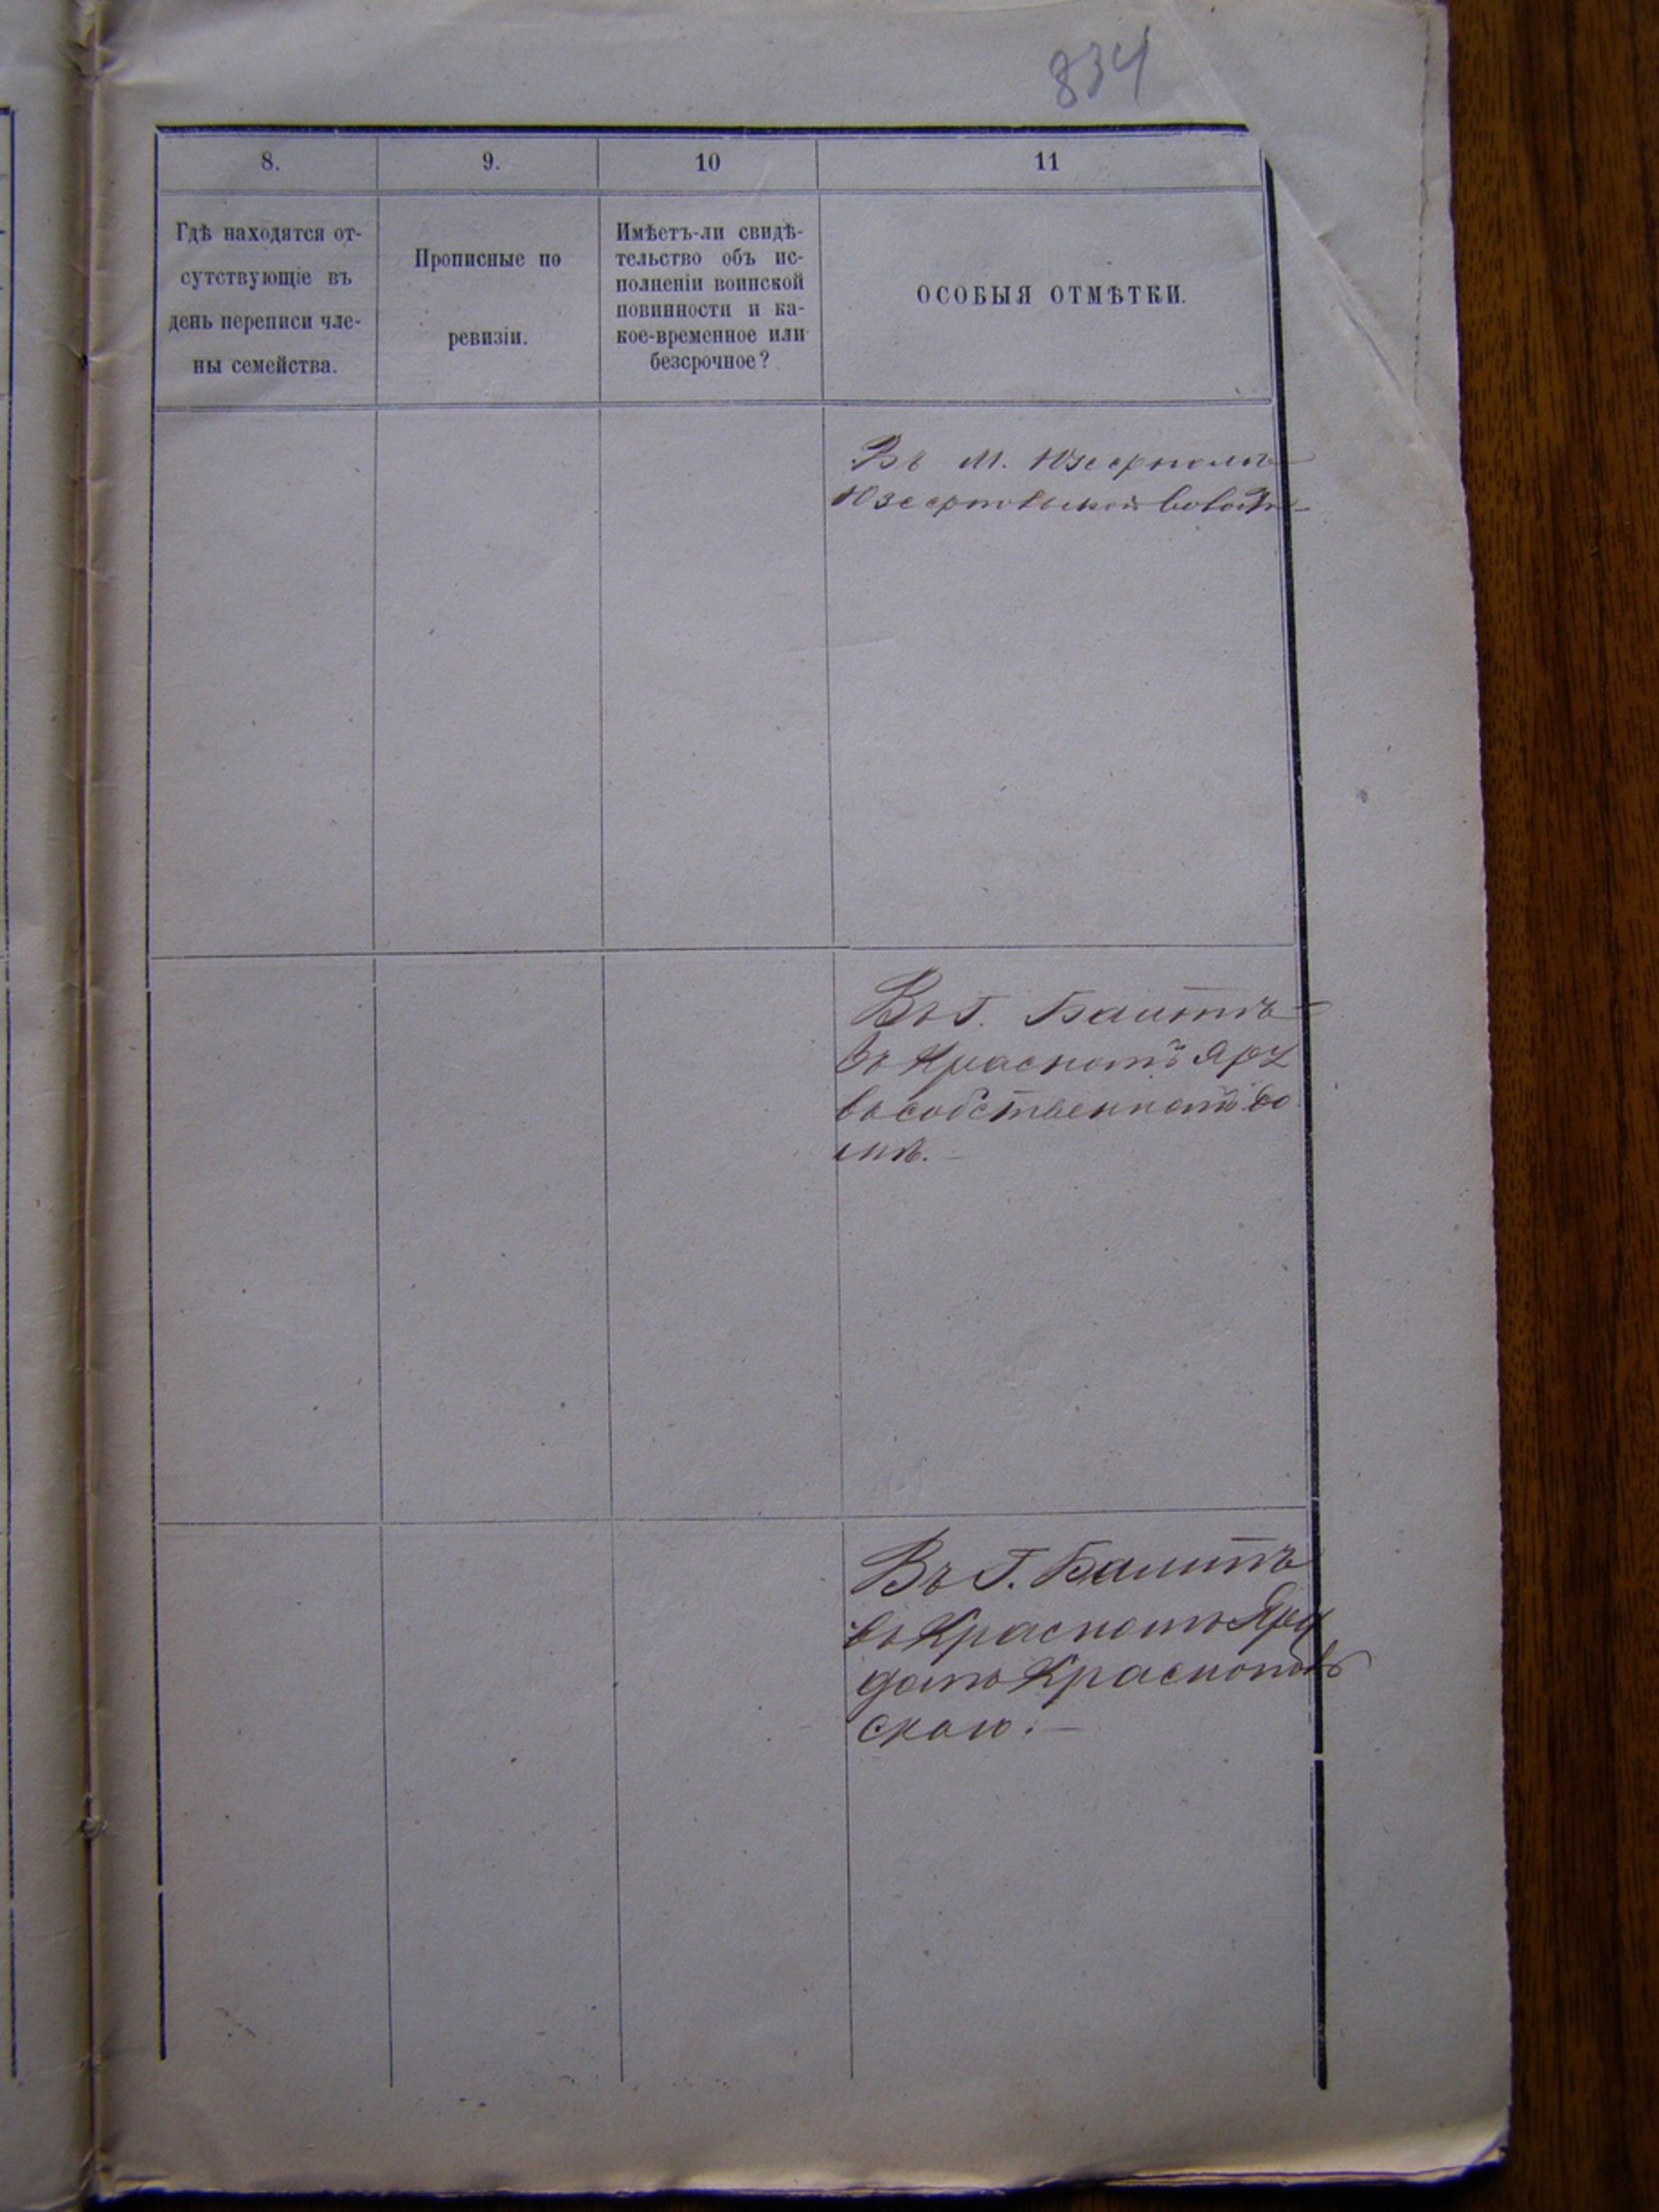 834
8.
9.
10
11
Гдѣ находятся от-
сутствующіе въ
день переписи чле-
ны семейства.
Прописные по
ревизіи.
Имѣетъ-ли свидѣ-
тельство объ ис-
полненіи воинской
повинности и ка-
кое-временное или
безсрочное?
ОСОБЫЯ ОТМѢТКИ.
Въ М.
волости
Въ Г. Балтѣ
въ Красномъ Яру
въ собственномъ до
мѣ.
Въ Г. Балтѣ
въ Красномъ Яру
домъ